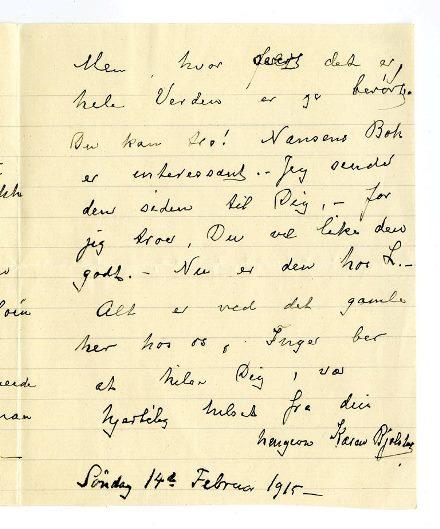 Men, hvor det er,
hele Verden er jo berört.
Du kan tro! Nansens Bok
er interessant.. Jeg sender
den siden til Dig, – for
jeg troer, Du vil like den
godt. – Nu er den hos L. –
Alt er ved det gamle
her hos os, Inger ber
at hilse Dig, vær
hjertelig hilset fra din
hengivne Karen
Söndag 14de Februar 1915 –